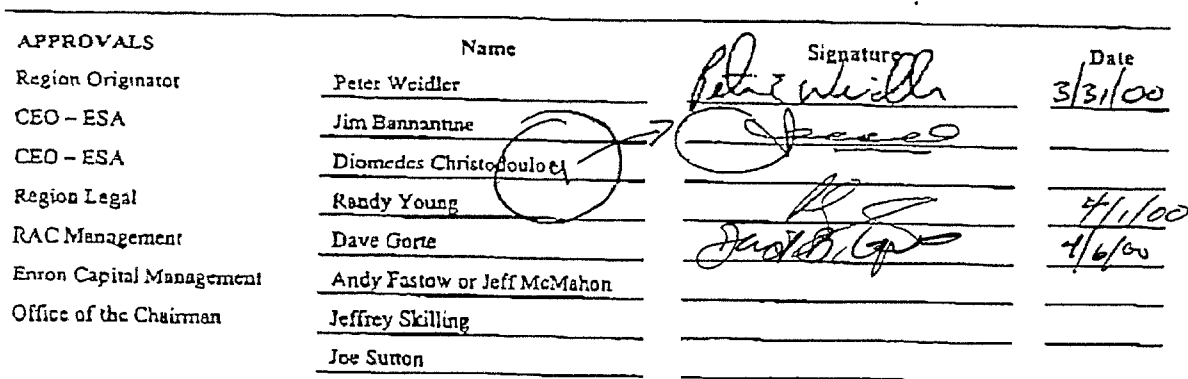 APPROVALS Name Signature Date
Region Originator Peter Weidler Peter Weidler 3/31/00
CEO – ESA Jim Bannantine
CEO – ESA Diomedes Christodoulou
Region Legal Randy Young 4/1/00
RAC Management Dave Gorte 4/6/00
Enron Capital Management Andy Fastow or Jeff McMahon
Office of the Chairman Jeffrey Skilling
Joe Sutton